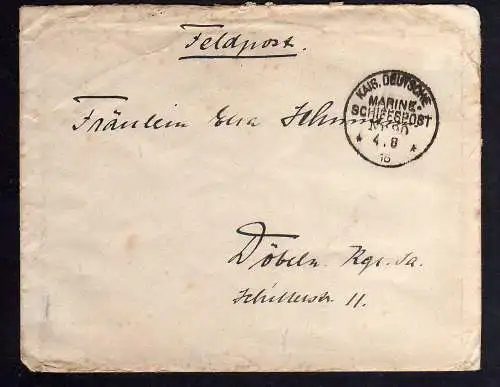 Feldpost.
KAIS. DEUTSCHE
MARINE-
SCHIFFSPOST
4.8
Fräulein
Döbeln Kgr. Sa.
Schillerstr 11.